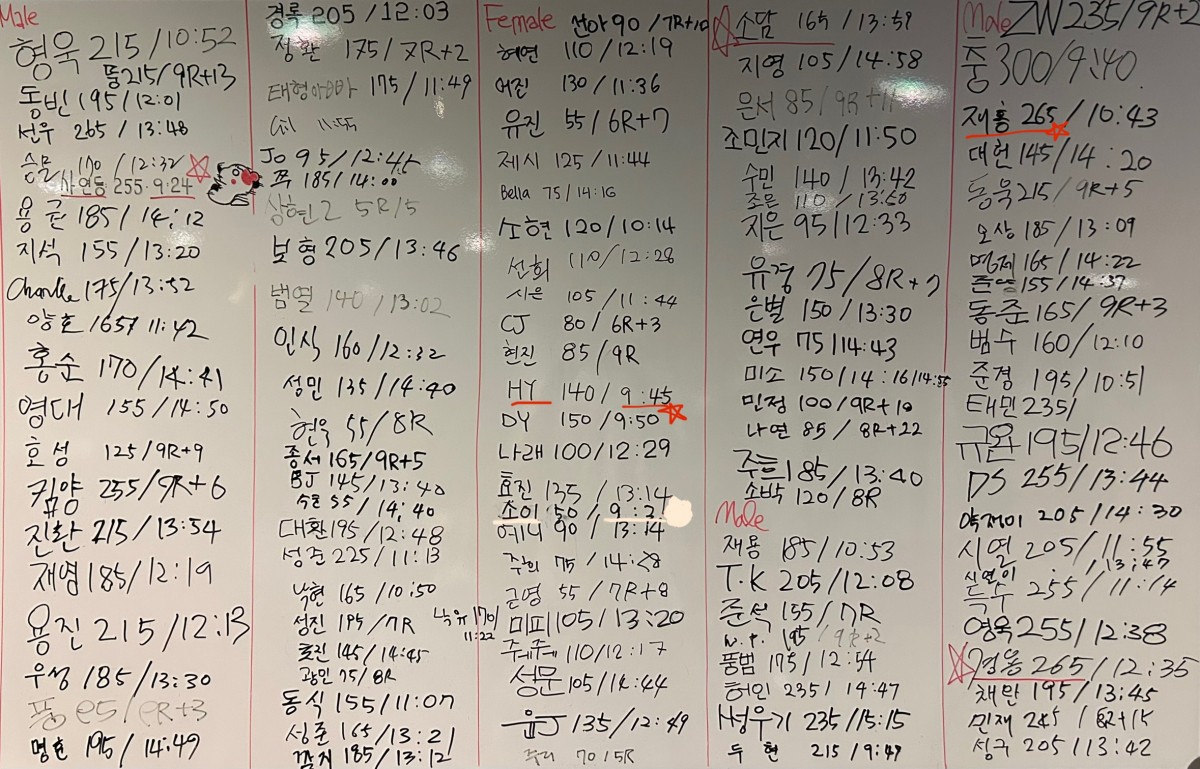 Male
형욱 215/10:52
뚱215/9R+13
동빈 195/12:01
선우 265/13:48
승문 170/12:32
사연등 255·9:24
용균 185/14:12
지석 155/13:20
Charlie 175/13:52
양호 165/11:42
홍순 170/14:41
영대 155/14:50
호성 125/9R+9
킴양 255/9R+6
진환 215/13:54
재영 185/12:19
용진 215/12:13
우성 185/13:30
/ eR+3
명호 195/14:49
경록 205/12:03
정환 175/7R+2
태형아빠 175/11:49
Gil 11:55
Jo 95/12:45
쪽 185/14:00
상현2 5R/5
보형 205/13:46
범열 140/13:02
인식 160/12:32
성민 135/14:40
현욱 55/8R
종서 165/9R+5
BJ 145/13:40
55/14:40
대환 195/12:48
성준 225/11:13
낙현 165/10:50
성진 195/7R
효진 145/14:45
광민 75/8R
동식 155/11:07
성준 165/13:21
185/13:12
Female 선아 90/7R+10
혜연 110/12:19
여진 130/11:36
유진 55/6R+7
제시 125/11:44
Bella 75/14:16
소현 120/10:14
선희 110/12:28
시은 105/11:44
CJ 80/6R+3
현진 85/9R
HY 140/9:45
DY 150/9:50
나래 100/12:29
효진 135/13:14
소이 150/9:21
예니 90/13:14
주희 75/14:28
근영 55/7R+8
낙유 170/11:22
미피 105/13:20
주주 110/12:17
성문 105/14:44
윤J 135/12:49
주리 70/5R
소담 165/13:51
지영 105/14:58
은서 85/9R+11
조민지 120/11:50
수민 140/13:42
조은 110/13:50
지은 95/12:33
유경 75/8R+7
은별 150/13:30
연우 75/14:43
미소 150/14:16/14:55
민정 100/9R+10
나연 85/8R+22
주흐 185/13:40
소박 120/8R
Male
재용 185/10:53
T.K 205/12:08
준석 155/7R
W.P. 195/9R+2
뚱범 175/12:54
허인 235/14:47
H성우기 235/15:15
두현 215/9:47
Male ZW 235/9R+2
중 300/9:40
재홍 265/10:43
대헌 145/14:20
동욱 215/9R+5
오상 185/13:09
명제 165/14:22
준영 155/14:37
동준 165/9R+3
범수 160/12:10
준경 195/10:51
태민 235/
규완 195/12:46
DS 255/13:44
약저이 205/14:30
시열 205/11:55
13:47
득수 255/11:14
영욱 255/12:38
경용 265/12:35
채만 195/13:45
민재 245/8R+15
성구 205/13:42